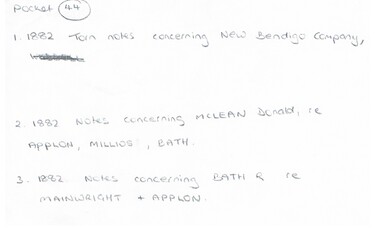 Pocket 44
1. 1882 Torn notes concerning New Bendigo Company,
2. 1882 Notes concerning MCLEAN Donald, re
APPLON, MILLIOS, BATH.
3. 1882 Notes concerning BATH R re
MAINWRIGHT + APPLON.